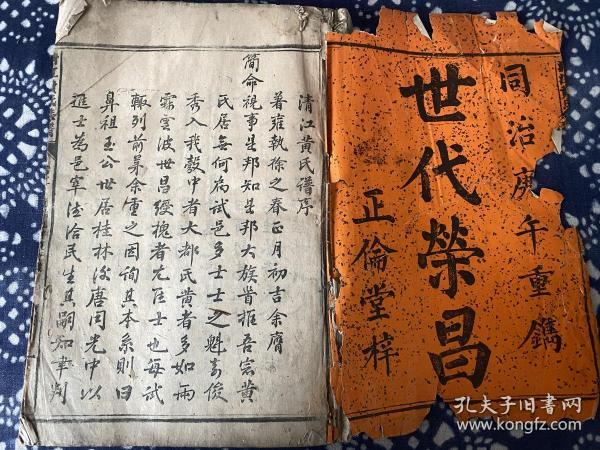 同治庚午重鐫
世代榮昌
正倫堂梓
清江黃氏譜序
著雍執徐之春正月初吉余膺
簡命視事是邦知是邦大族首推吾宗黃
氏居無何為試邑多士士之魁奇俊
秀入我彀中者大都氏黃者多如雨
霖雲波世昌綬槐者尤巨士也每試
輙列前茅余重之因詢其本系則曰
鼻祖玉公世居桂林後唐同光中以
進士為邑宰德洽民生其嗣知聿判
孔夫子旧书网
www.kongfz.com